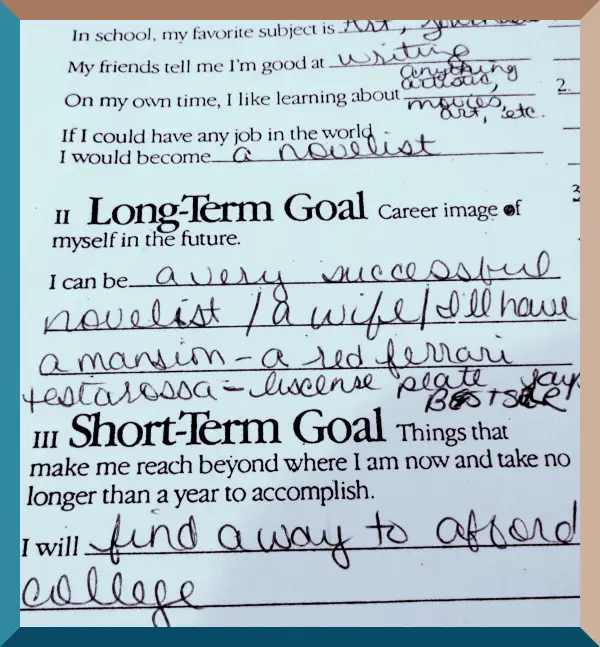 In school, my favorite subject is Art,
My friends tell me I'm good at writing
On my own time, I like learning about anything artistic, movies, art, etc.
2.
If I could have any job in the world
I would become a novelist
3
II Long-Term Goal Career image of
myself in the future.
I can be a very successful
novelist / a wife / I'll have
a mansion - a red ferrari
testarossa - liscense plate says
BESTSLR
III Short-Term Goal Things that
make me reach beyond where I am now and take no
longer than a year to accomplish.
I will find a way to afford
college